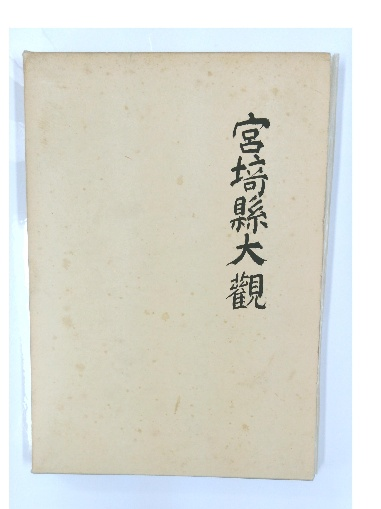 宮埼縣大觀